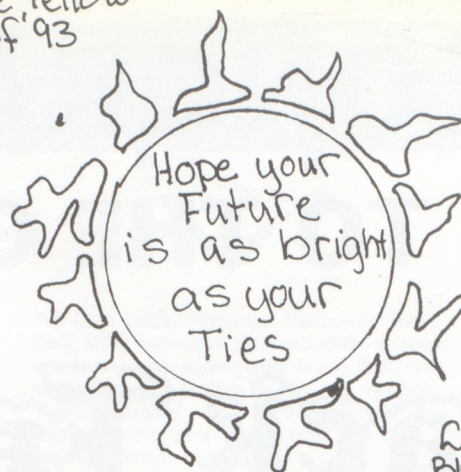 Yellow
of '93
Hope your
Future
is as bright
as your
Ties